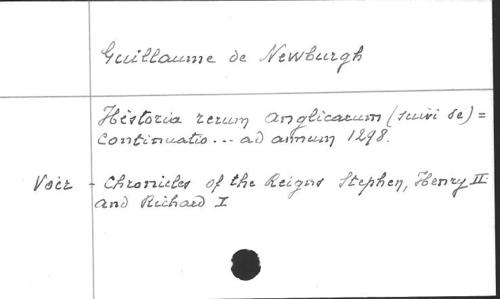 Guillaume de Newburgh
Historia rerum anglicarum (suivi de) =
Continuatio... ad annum 1298.
Voir - Chronicles of the Reigns Stephen, Henry II
and Richard I